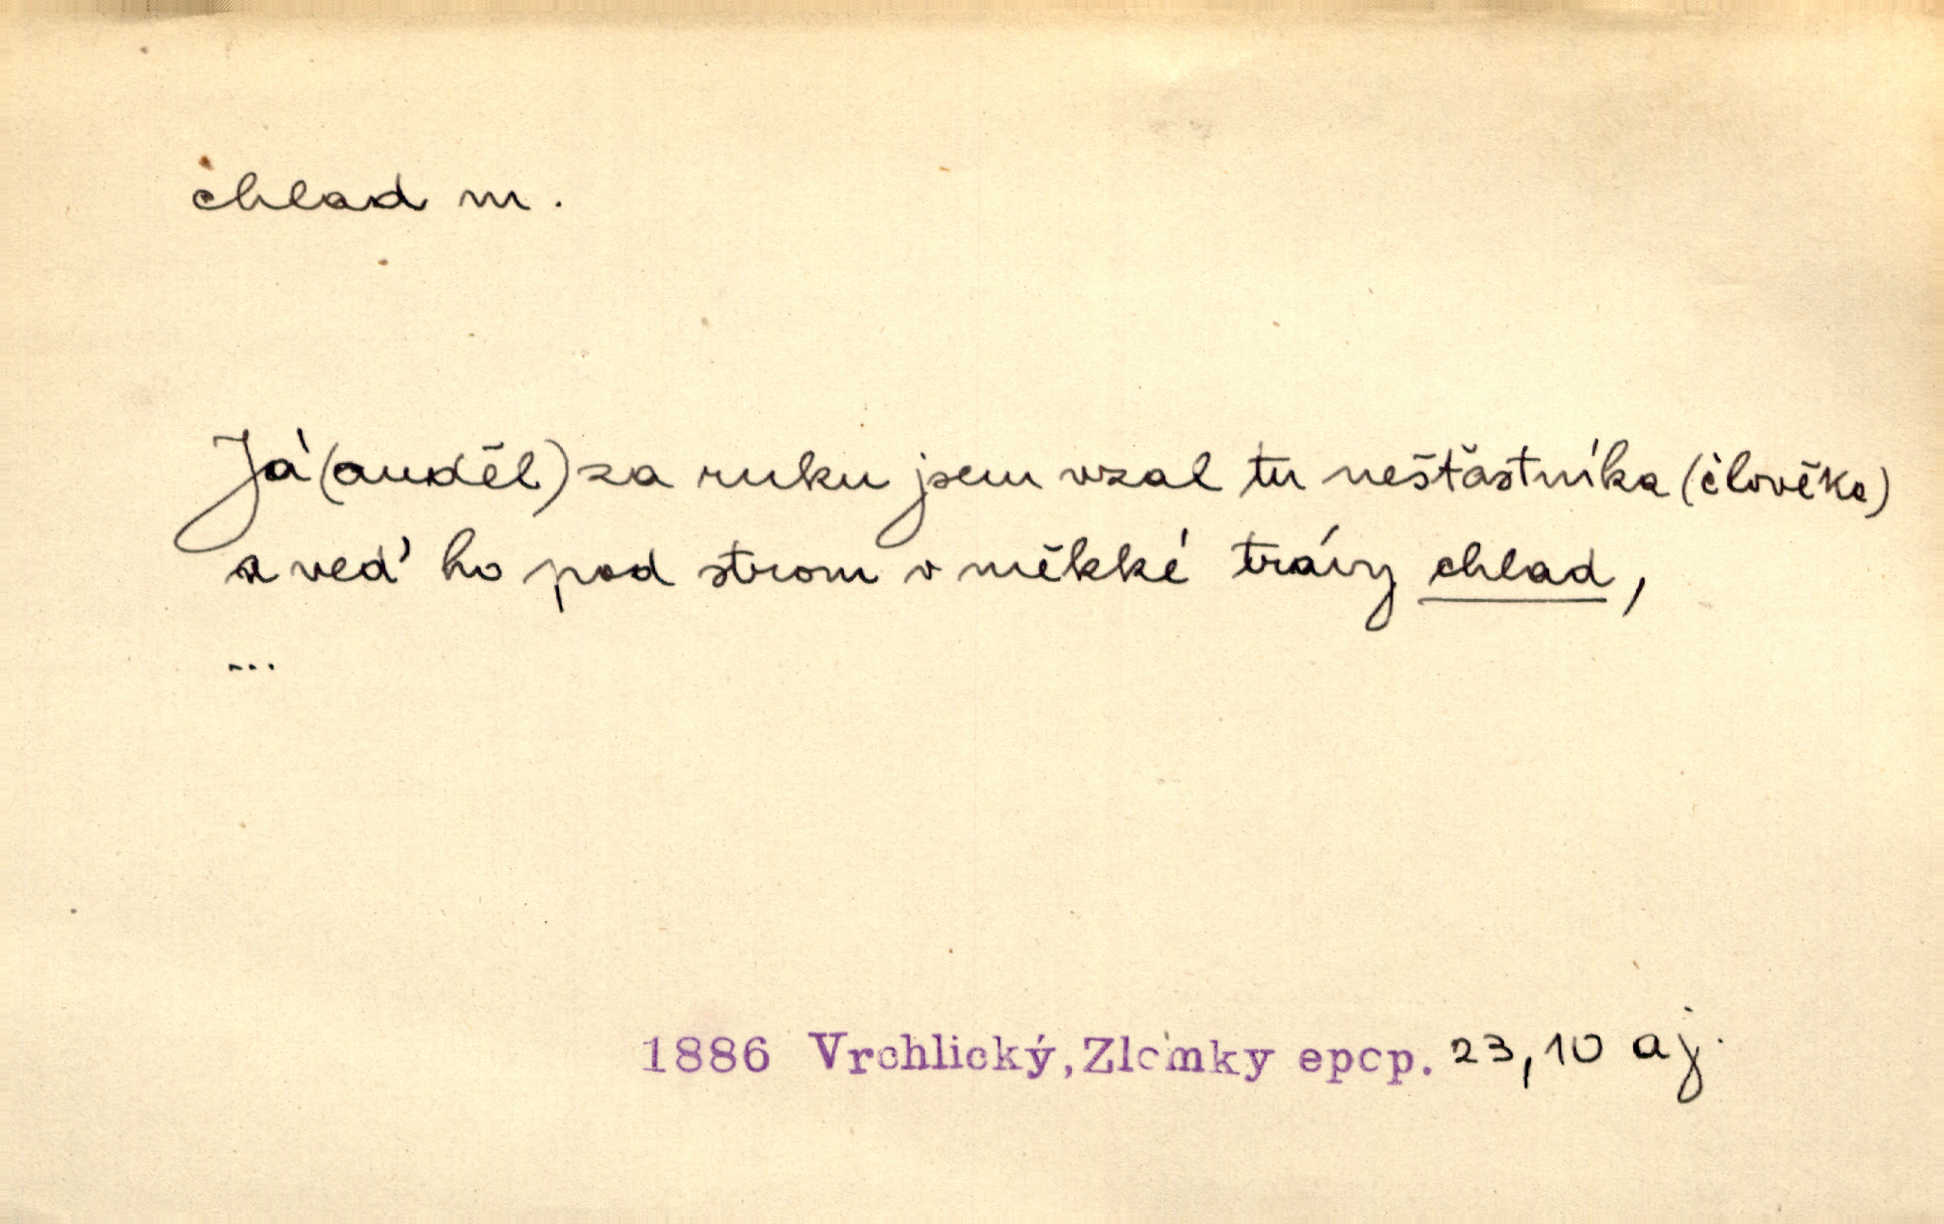 chlad m.
Já (anděl) za ruku jsem vzal tu nešťastníka (člověka)
a ved' ho pod strom v měkké trávy chlad,
...
1886 Vrchlický, Zlomky epop. 23,10 aj.